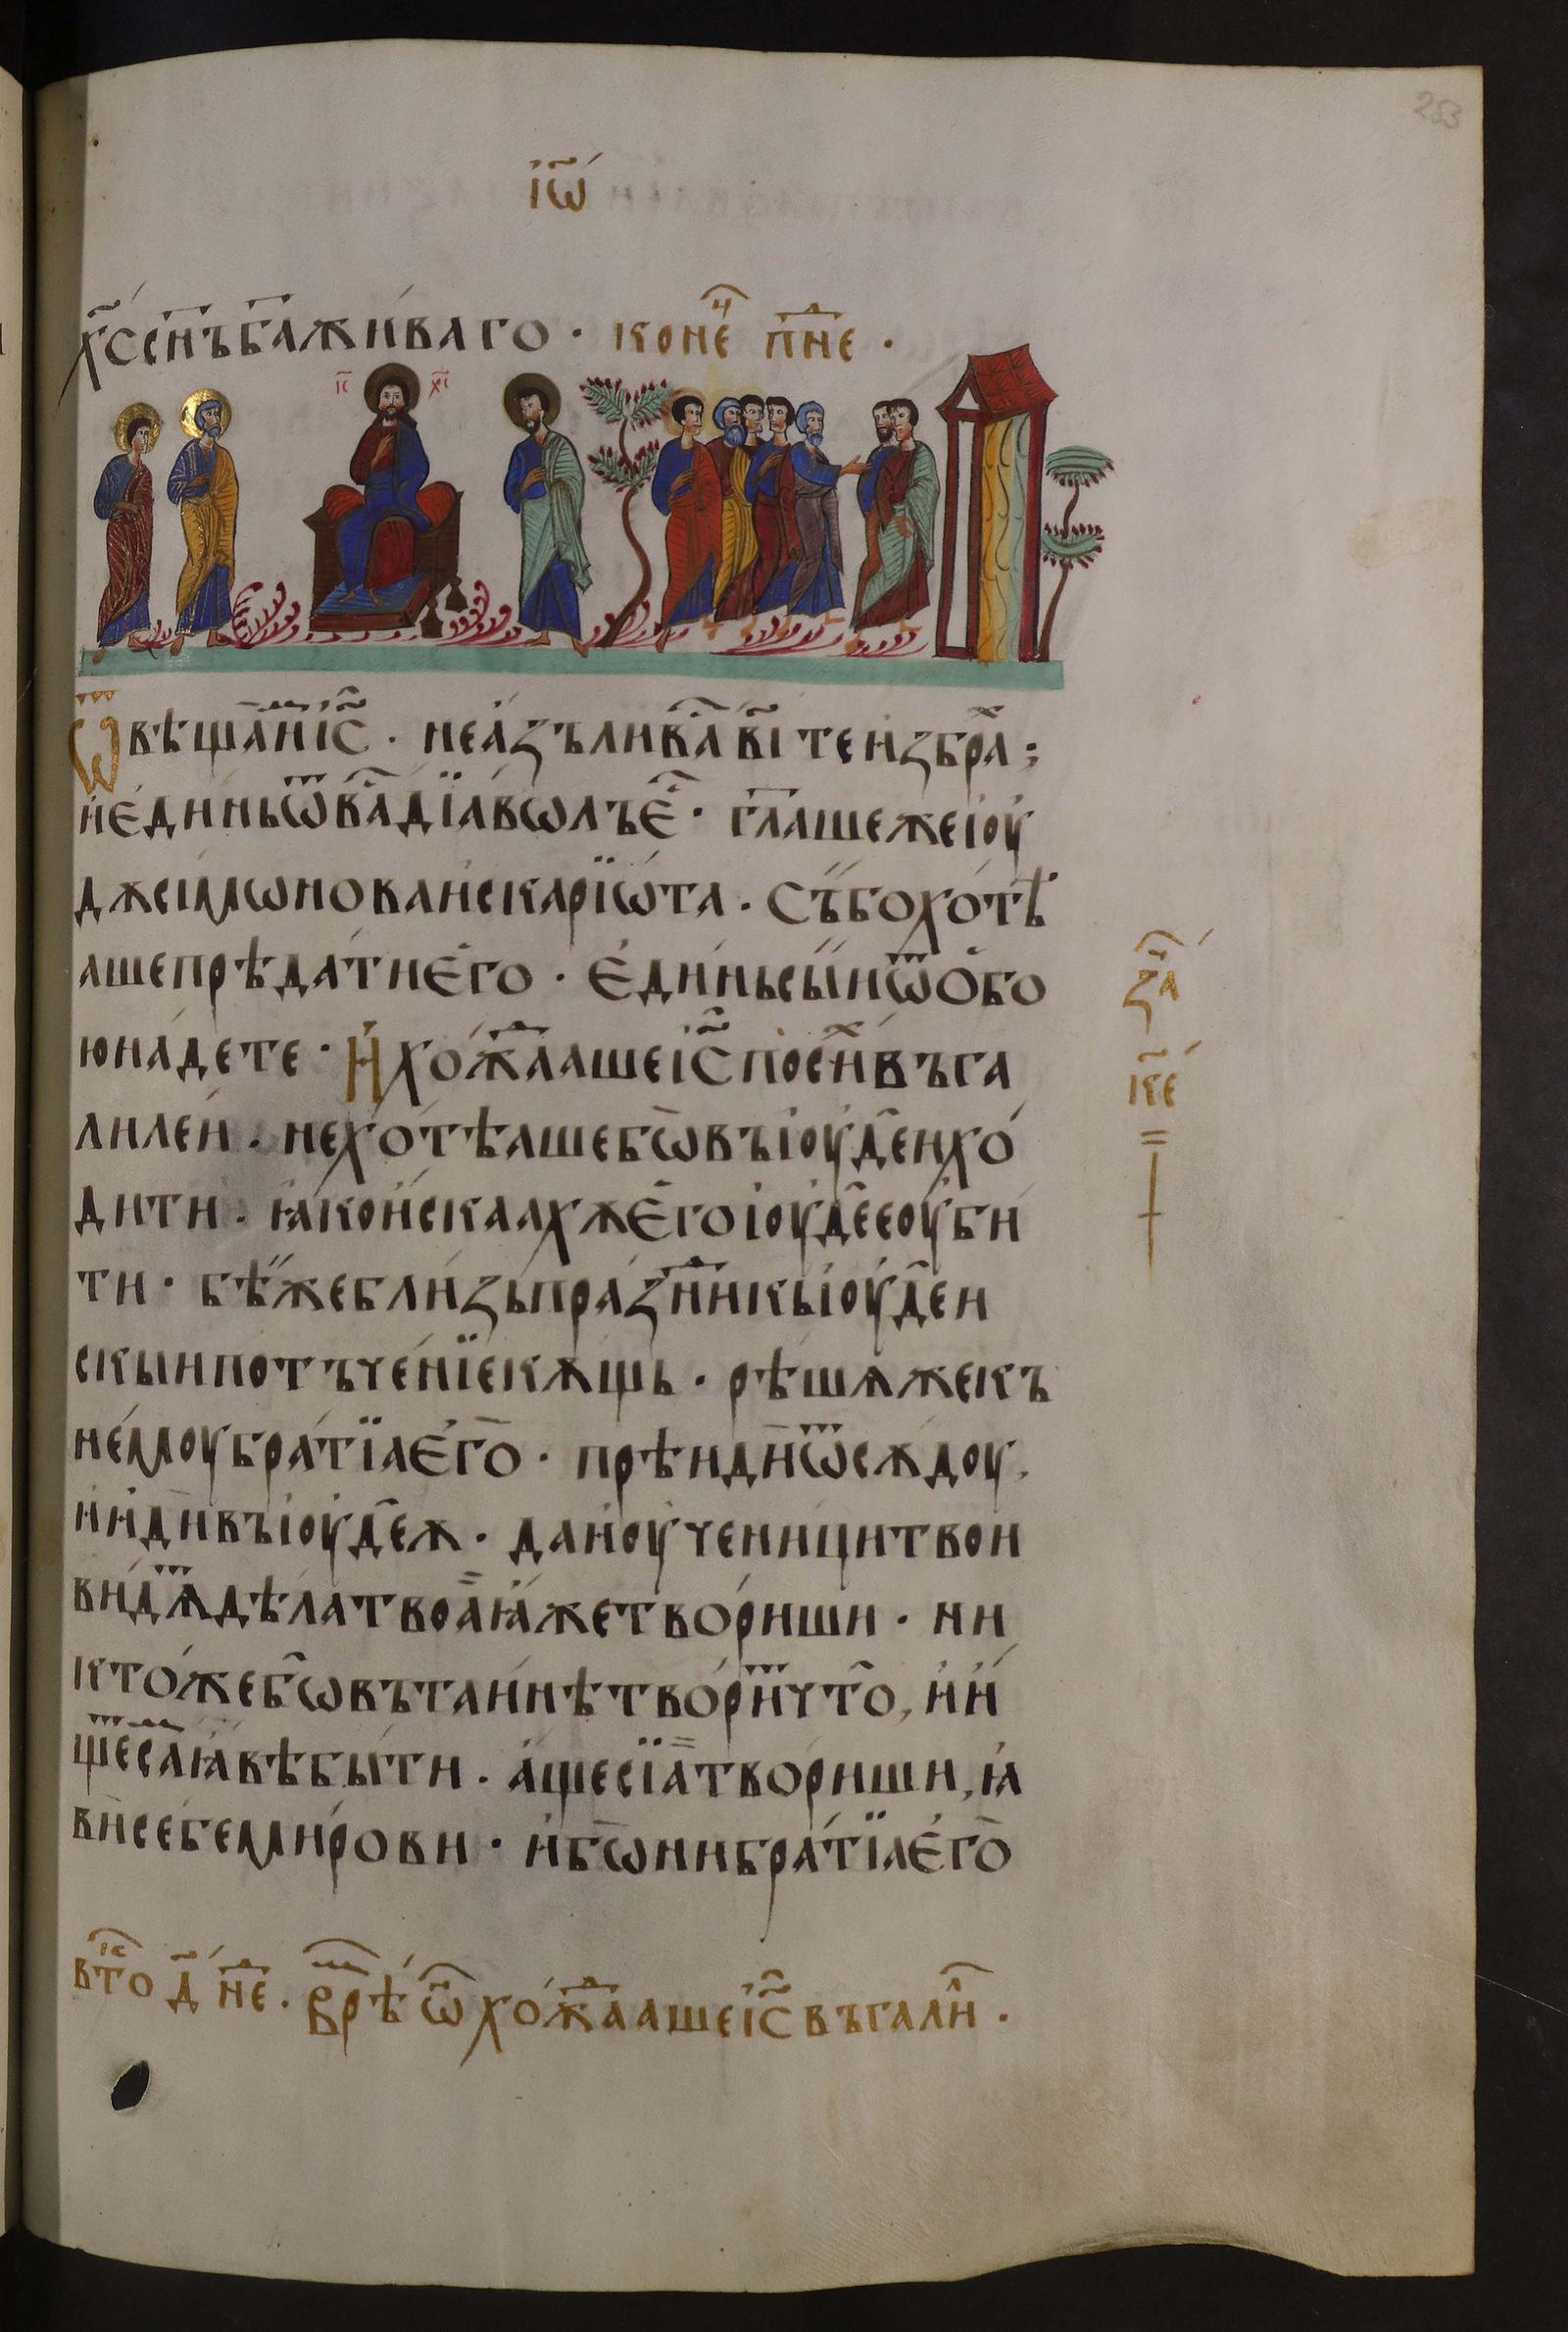 253
і҆ѡ҃
х҃с сн҃ъ б҃а живаго · коне ⷰ҇ пнⷣе ·
і҃с х҃с
ѿвѣщаⷲ҇ и҆м і҃с · не а҆зъ ли ва҆ ві҃ те и҆збраⷯ ;
и҆ є҆динь ѿ ва҆ дїаволъ є҆ · гл҃аше же і҆оу
дѫ сімѡнова и҆скарїѡта · съ бо хотѣ
аше прѣдати є҆го · є҆динь сы и҆ ѿ обо
юнадете · И҆ хожⷣааше і҃с по сиⷯ въ га
лилеи · не хотѣаше бѡ въ і҆оуде҆и хо
дити · ꙗ҆ко и҆скаахѫ є҆го і҆оуде҆е оуби
ти · бѣ же близь празⷣникь і҆оуде҆и
скыи потъченїе кѫщь · рѣшѧ же къ
немоу братїа є҆го · прѣиди ѿсѫдоу,
и҆ и҆ди въ і҆оуде҆ѫ · да и҆ оученици твои
видѧⷮ дѣла твоа ꙗ҆же твориши · ни
кто же бѡ въ таинѣ твориⷮ что, и҆ и҆
щеⷮ саⷨ ꙗ҆вѣ быти · а҆ще сїа твориши, ꙗ҆
ви себе мирови · и҆ бѡ ни братїа є҆го
за҆
к҃е
втоⷬ҇ д҃ нⷣе · врѣⷨ ѡ҆ хожⷣааше і҃с въ галиⷧ ·